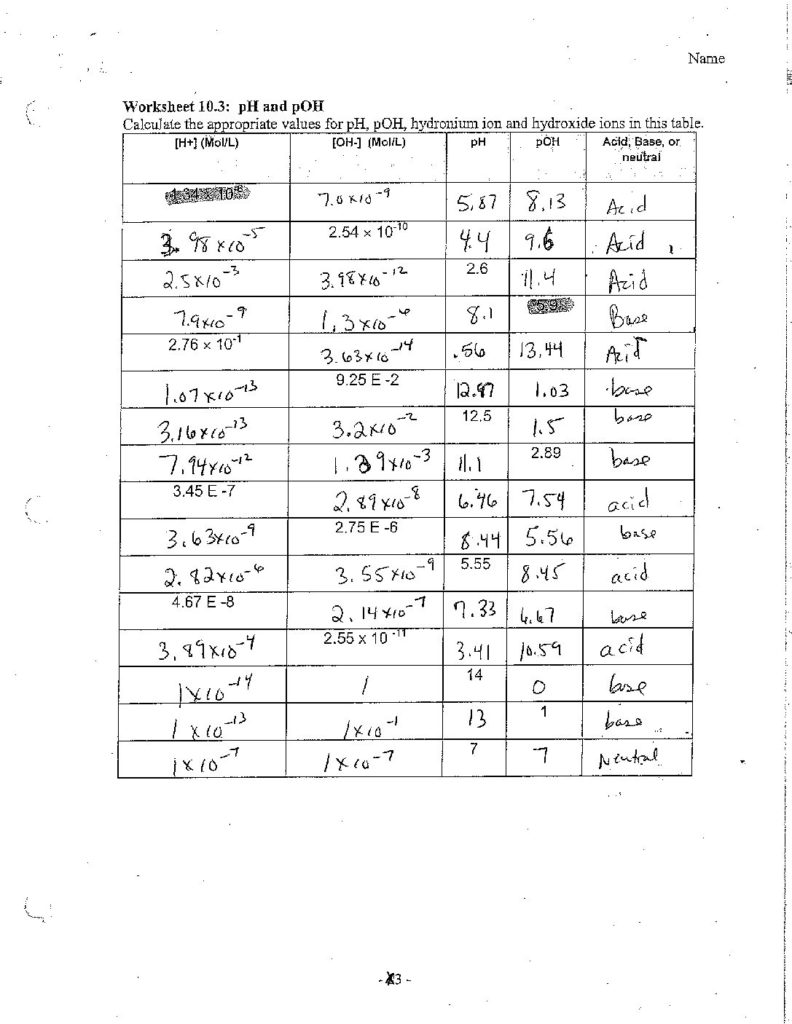 Name
Worksheet 10.3: pH and pOH
Calculate the appropriate values for pH, pOH, hydronium ion and hydroxide ions in this table.
[H+] (Mol/L) [OH-] (Mol/L) pH pOH Acid, Base, or neutral
1.34 x 10⁻⁶ 7.0 x 10⁻⁹ 5.87 8.13 Acid
3.98 x 10⁻⁵ 2.54 x 10⁻¹⁰ 4.4 9.6 Acid
2.5 x 10⁻³ 3.98 x 10⁻¹² 2.6 11.4 Acid
7.9 x 10⁻⁹ 1.3 x 10⁻⁶ 8.1 5.9 Base
2.76 x 10⁻¹ 3.63 x 10⁻¹⁴ .56 13.44 Acid
1.07 x 10⁻¹³ 9.25 E -2 12.97 1.03 base
3.16 x 10⁻¹³ 3.2 x 10⁻² 12.5 1.5 base
7.94 x 10⁻¹² 1.29 x 10⁻³ 11.1 2.89 base
3.45 E -7 2.89 x 10⁻⁸ 6.46 7.54 acid
3.63 x 10⁻⁹ 2.75 E -6 8.44 5.56 base
2.82 x 10⁻⁶ 3.55 x 10⁻⁹ 5.55 8.45 acid
4.67 E -8 2.14 x 10⁻⁷ 7.33 6.67 base
3.89 x 10⁻⁴ 2.55 x 10⁻¹¹ 3.41 10.59 acid
1 x 10⁻¹⁴ 1 14 0 base
1 x 10⁻¹³ 1 x 10⁻¹ 13 1 base
1 x 10⁻⁷ 1 x 10⁻⁷ 7 7 Neutral